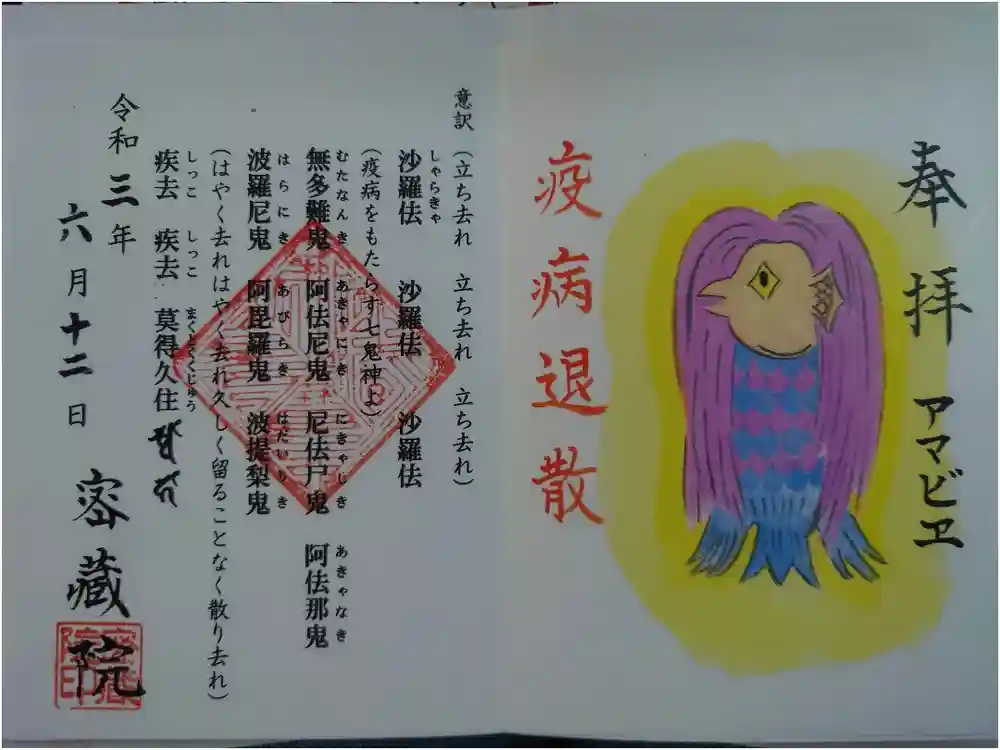 奉拝 アマビヱ
疫病退散
意訳（立ち去れ 立ち去れ 立ち去れ）
しゃらきゃ
沙羅佉 沙羅佉 沙羅佉
（疫病をもたらす七鬼神よ）
むたなんき あきゃにき にきゃしき あきゃなき
無多難鬼 阿佉尼鬼 尼佉尸鬼 阿佉那鬼
はらにき あびらき はだいりき
波羅尼鬼 阿毘羅鬼 波提梨鬼
（はやく去れはやく去れ久しく留ることなく散り去れ）
しっこ しっこ まくとくくじゅう
疾去 疾去 莫得久住
令和三年
六月十二日
密蔵院